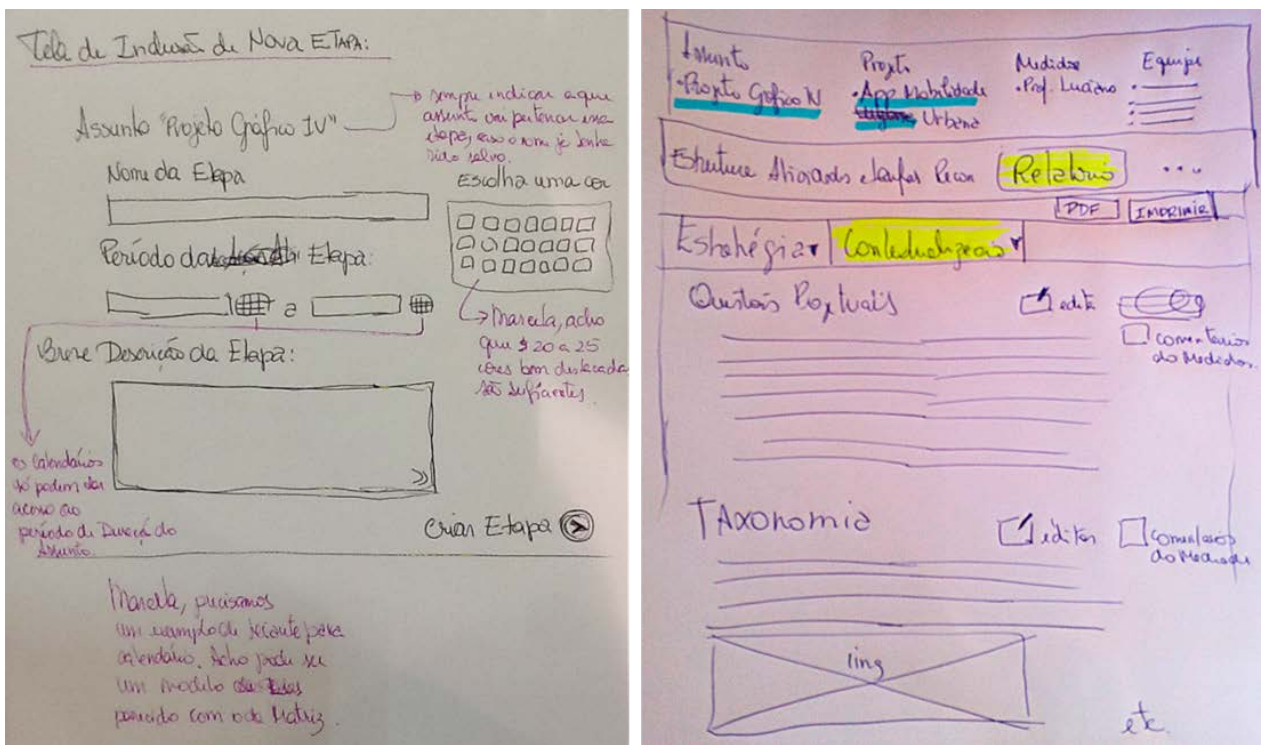 Tela de Inclusão de Nova ETAPA:
Assunto "Projeto Gráfico IV"
sempre indicar a que
assunto vai pertencer essa
etapa, caso o nome já tenha
sido salvo.
Nome da Etapa
Escolha uma cor
Período da Etapa:
a
Marcela, acho
que 20 a 25
cores bem destacadas
são suficientes.
Breve Descrição da Etapa:
os calendários
só podem dar
acesso ao
período de Duração do
Assunto.
Criar Etapa
Marcela, precisamos
um exemplo de para
calendário. Acho pode ser
um modelo
parecido com o da Matriz.
Assunto Projeto Medidor Equipe
•Projeto Gráfico IV •App Mobilidade •Prof. Luciano
Urbana
Estrutura Relatório ...
PDF IMPRIMIR
Estratégia Contextualização
Questões Projetuais edita
comentários
do Medidor.
TAxonomia editar comentários
do
img
etc.